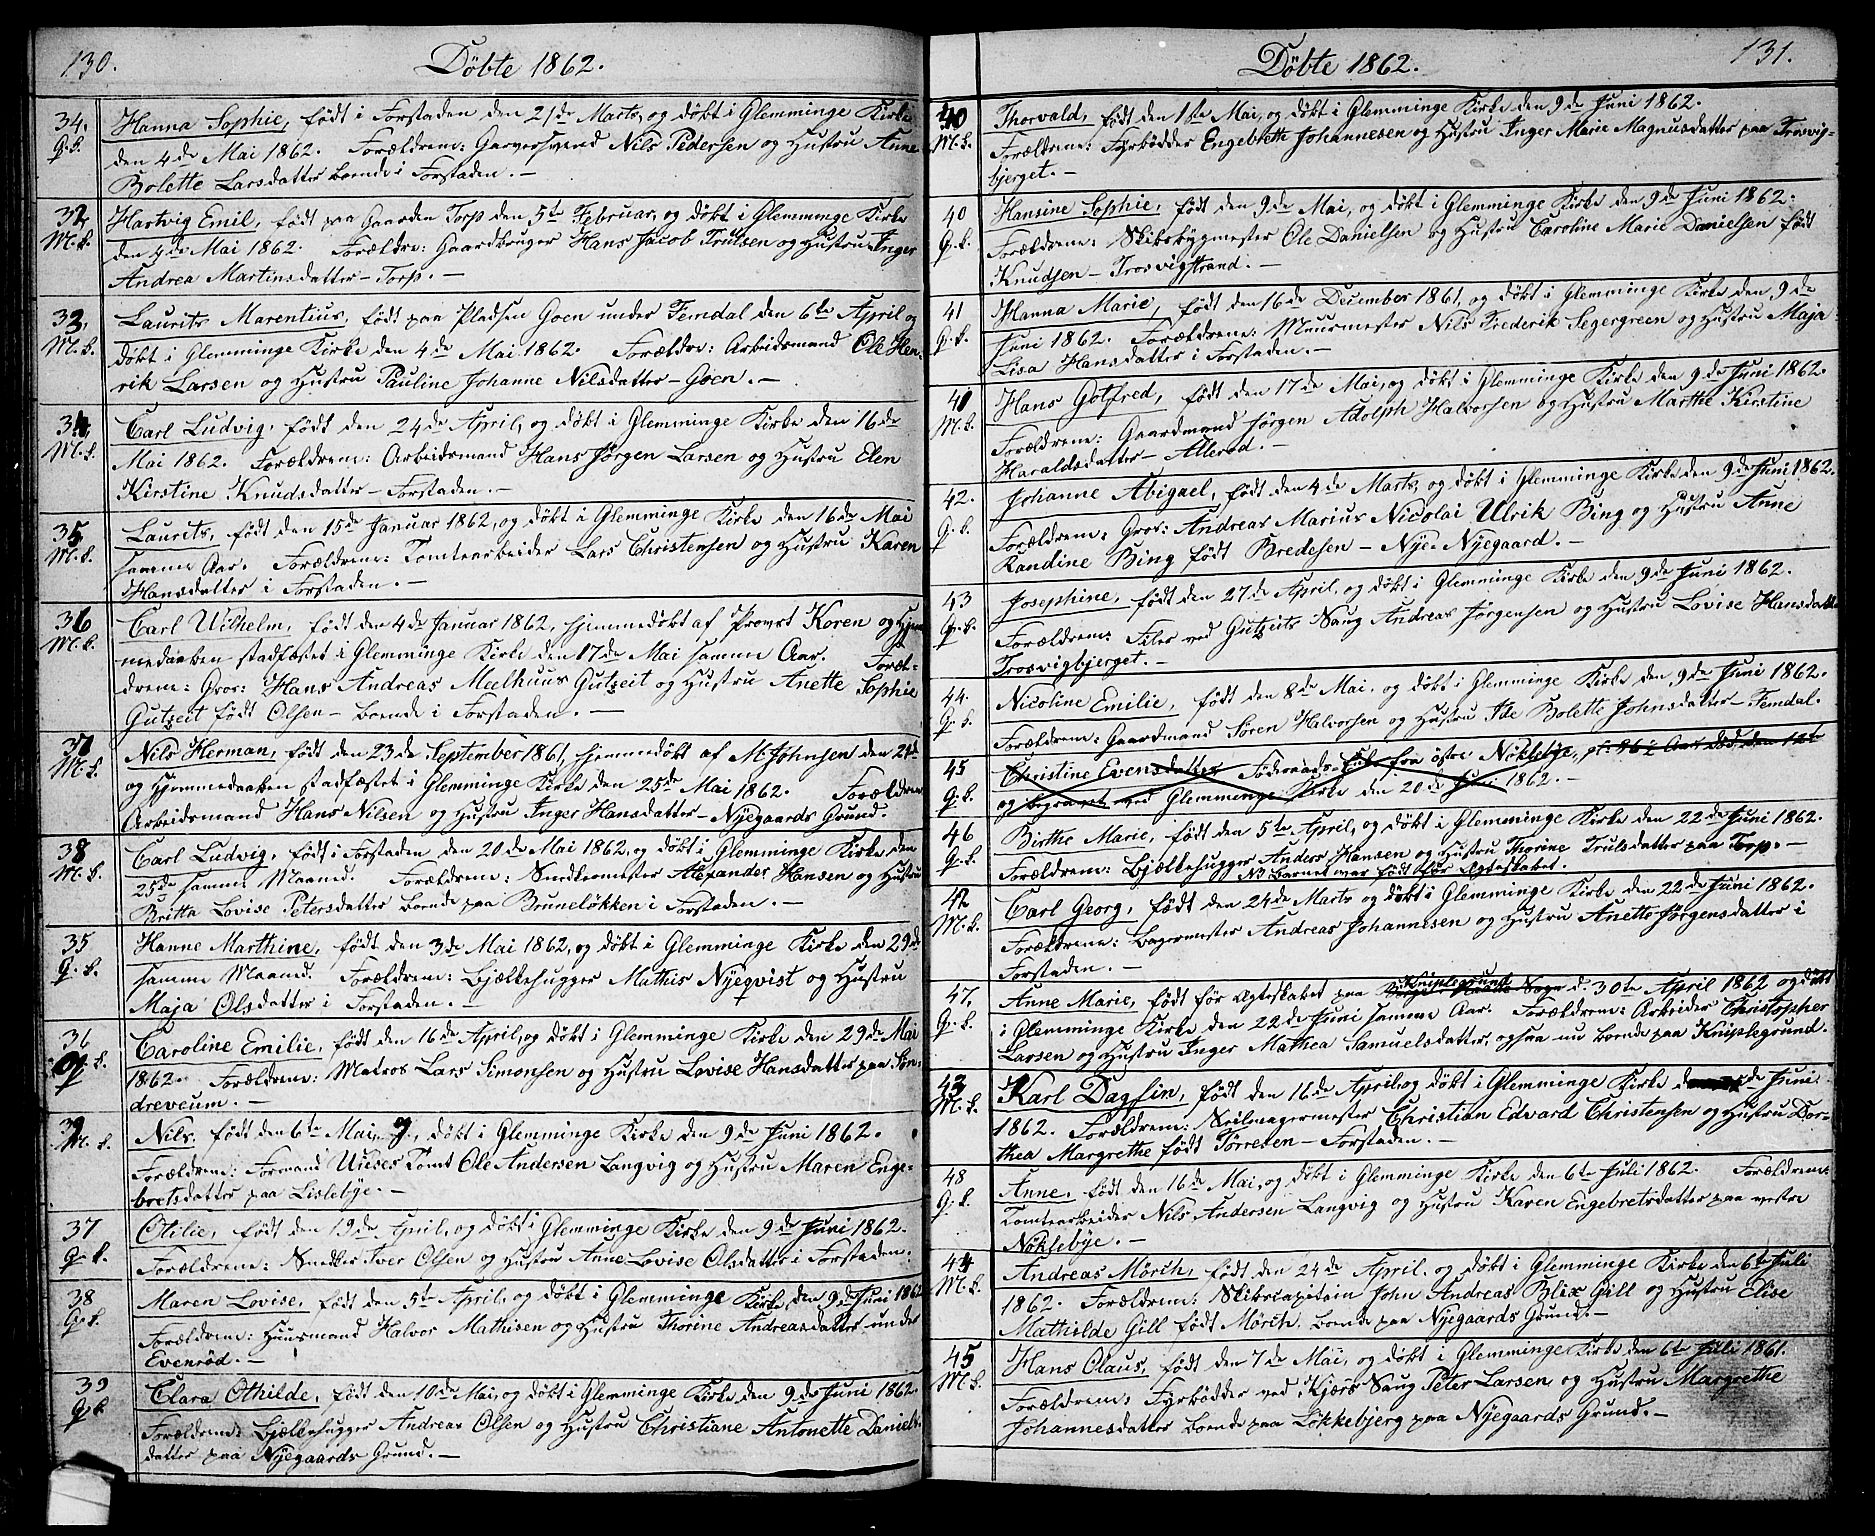 130.
Döbte 1862.
34. Hanna Sophie, født i Forstaden den 21de Marts, og døbt i Glemminge Kirke
Q.k. den 4de Mai 1862. Forældrene: Garversvend Nils Pedersen og Hustru Anne
Bolette Larsdatter boende i Forstaden. –
32 Hartvig Emil, født paa Gaarden Torp den 5te Februar, og døbt i Glemminge Kirke
M.k. den 4de Mai 1862. Forældre: Gaardbruger Hans Jacob Trulsen og Hustru Inger
Andrea Martinsdatter – Torp. –
33. Laurits Marentius, født paa Pladsen Goen under Femdal den 6te April og
M.k. døbt i Glemminge Kirke den 4de Mai 1862. Forældre: Arbeidsmand Ole Hen-
rik Larsen og Hustru Pauline Johanne Nilsdatter – Goen. –
34. Carl Ludvig, født den 24de April, og døbt i Glemminge Kirke den 16de
M.k. Mai 1862. Forældrene: Arbeidsmand Hans Jørgen Larsen og Hustru Elen
Kirstine Knudsdatter – Forstaden. –
35 Laurits, født den 15de Januar 1862, og døbt i Glemminge Kirke den 16de Mai
M.k. samme Aar. Forældrene: Tomtearbeider Lars Christensen og Hustru Karen
Hansdatter i Forstaden. –
36 Carl Wilhelm, født den 4de Januar 1862, hjemmedøbt af Provst Koren og Hjem-
M.k. medaaben stadfæstet i Glemminge Kirke den 17de Mai samme Aar. Foræl-
drene: Gros: Hans Andreas Melhuus Gutzeit og Hustru Anette Sophie
Gutzeit født Olsen – boende i Forstaden. –
37 Nils Herman, født den 23de September 1861, hjemmedøbt af M. Johnsen den 28de
M.k. og Hjemmedaaben stadfæstet i Glemminge Kirke den 25de Mai 1862. Forældrene
Arbeidsmand Hans Nilsen og Hustru Inger Hansdatter – Nyegaards Grund.
38 Carl Ludvig, født i Forstaden den 20de Mai 1862, og døbt i Glemminge Kirke den
M.k. 25de samme Maaned. Forældrene: Smedkermester Alexander Hansen og Hustru
Britta Lovise Petersdatter boende paa Bruneløkken i Forstaden. –
35 Hanne Marthine, født den 3de Mai 1862, og døbt i Glemminge Kirke den 29de
Q.k. samme Maaned. Forældrene: Bjælkehugger Mathis Nyeqvist og Hustru
Maja Olsdatter i Forstaden. –
36 Caroline Emilie, født den 16de April, og døbt i Glemminge Kirke den 29de Mai
Q.k. 1862. Forældrene: Matros Lars Simonsen og Hustru Lovise Hansdatter paa Søn-
dreveum. –
39 Nils, født den 6te Mai, og, døbt i Glemminge Kirke den 9de Juni 1862.
M.k. Forældrene: Formand Tomt Ole Andersen Langvig og Hustru Maren Enge-
bretsdatter paa Lislebye. –
37 Otilie, født den 19de April, og døbt i Glemminge Kirke den 9de Juni 1862.
Q.k. Forældrene: Smedker Iver Olsen og Hustru Anne Lovise Olsdatter i Forstaden.
38 Maren Lovise, født den 5te April, og døbt i Glemminge Kirke den 9de Juni 1862
Q.k. Forældrene: Huusmand Halvor Mathisen og Hustru Thorine Andreasdatter under
Evenrød. –
39 Clara Othilde, født den 10de Mai, og døbt i Glemminge Kirke den 9de Juni 1862.
Q.k. Forældrene Bjælkehugger Andreas Olsen og Hustru Christiane Antonette Daniels-
datter paa Nyegaards Grund. –
Döbte 1862.
131.
40 Thorvald, født den 1ste Mai, og døbt i Glemminge Kirke den 9de Juni 1862.
M.k. Forældrene: Fyrbødder Engebreth Johannesen og Hustru Inger Marie Magnusdatter paa Trosvig-
bjerget. –
40 Hansine Sophie, født den 9de Mai, og døbt i Glemminge Kirke den 9de Juni 1862.
Q.k. Forældrene: Skibsbygmester Ole Danielsen og Hustru Caroline Marie Danielsen født
Knudsen – Trosvigstrand. –
41 Hanna Marie, født den 16de December 1861, og døbt i Glemminge Kirke den 9de
Q.k. Juni 1862. Forældrene: Muurmester Nils Frederik Segergreen og Hustru Maja
Lisa Hansdatter i Forstaden. –
41 Hans Gotfred, født den 17de Mai, og døbt i Glemminge Kirke den 9de Juni 1862.
M.k. Forældrene: Gaardmand Jørgen Adolph Halvorsen og Hustru Marthe Kirstine
Haraldsdatter – Allerød. –
42. Johanne Abigael, født den 4de Marts, og døbt i Glemminge Kirke den 9de Juni 1862.
Q.k. Forældrene: Gros: Andreas Marius Nicolai Ulrik Bing og Hustru Anne
Kandine Bing født Bredesen – Nye-Nyegaard. –
43 Josephine, født den 27de April, og døbt i Glemminge Kirke den 9de Juni 1862.
Q.k. Forældrene: Filer ved Gutzeits Saug Andreas Jørgensen og Hustru Lovise Hansdatter
Trosvigbjerget. –
44. Nicoline Emilie, født den 8de Mai, og døbt i Glemminge Kirke den 9de Juni 1862.
Q.k. Forældrene: Gaardmand Søren Halvorsen og Hustru Ide Bolette Johnsdatter – Femdal.
45 Christine Evensdatter Føderaads Enke fra østre Nøklebye, pt. 86½ Aar død den 12te
Q.k. og begravet ved Glemminge Kirke den 20de Juni 1862. –
46 Birthe Marie, født den 5te April, og døbt i Glemminge Kirke den 22de Juni 1862.
Q.k. Forældrene: Bjælkehugger Anders Hansen og Hustru Thorine Trulsdatter paa Torp. –
NB Barnet var født før Ægteskabet.
42 Carl Georg, født den 24de Marts og døbt i Glemminge Kirke den 22de Juni 1862.
M.k. Forældrene: Bagermester Andreas Johannesen og Hustru Anette Jørgensdatter i
Forstaden. –
47. Anne Marie, født før Ægteskabet paa Kniplegrund d. 30te April 1862 og døbt
Q.k. i Glemminge Kirke den 22de Juni samme Aar. Forældrene: Arbeider Christopher
Larsen og Hustru Inger Mathea Samuelsdatter, ogsaa nu boende paa Kniplegrund.
43 Karl Dagfin, født den 16de April, og døbt i Glemminge Kirke de Juni
M.k. 1862. Forældrene: Seilmagermester Christian Edvard Christensen og Hustru Dor-
thea Margrethe født Tørresen – Forstaden. –
48 Anne, født den 16de Mai, og døbt i Glemminge Kirke den 6te Juli 1862. Forældrene:
Q.k. Tomtearbeider Nils Andersen Langvig og Hustru Karen Engebretsdatter paa vestre
Nøklebye. –
44 Andreas Mörch, født den 24de April, og døbt i Glemminge Kirke den 6te Juli
M.k. 1862. Forældrene: Skibscapitain John Andreas Blix Gill og Hustru Elise
Mathilde Gill født Mörch, boende paa Nyegaards Grund. –
45 Hans Olaus, født den 7de Mai, og døbt i Glemminge Kirke den 6te Juli 1861.
M.k. Forældrene: Fyrbødder ved Kjærs Saug Peter Larsen og Hustru Margrethe
Johannesdatter boende paa Løkkebjerg paa Nyegaards Grund. –